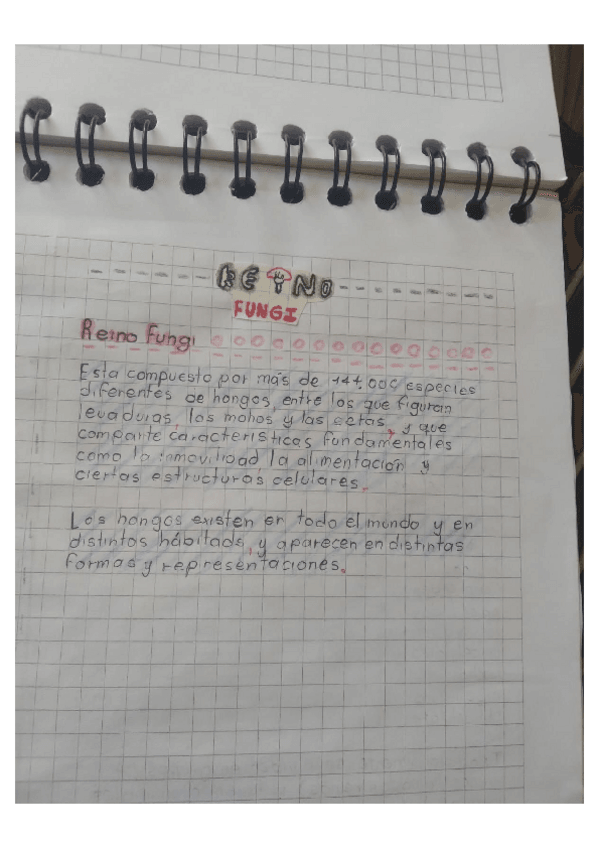 REINO
FUNGI
Reino Fungi
Esta compuesto por más de 144.000 especies
diferentes de hongos, entre los que figuran
levaduras, los mohos y las setas, y que
comparte caracteristicas fundamentales
como la inmovilidad la alimentación y
ciertas estructuras celulares.
Los hongos existen en todo el mundo y en
distintos hábitads, y aparecen en distintas
formas y representaciones.